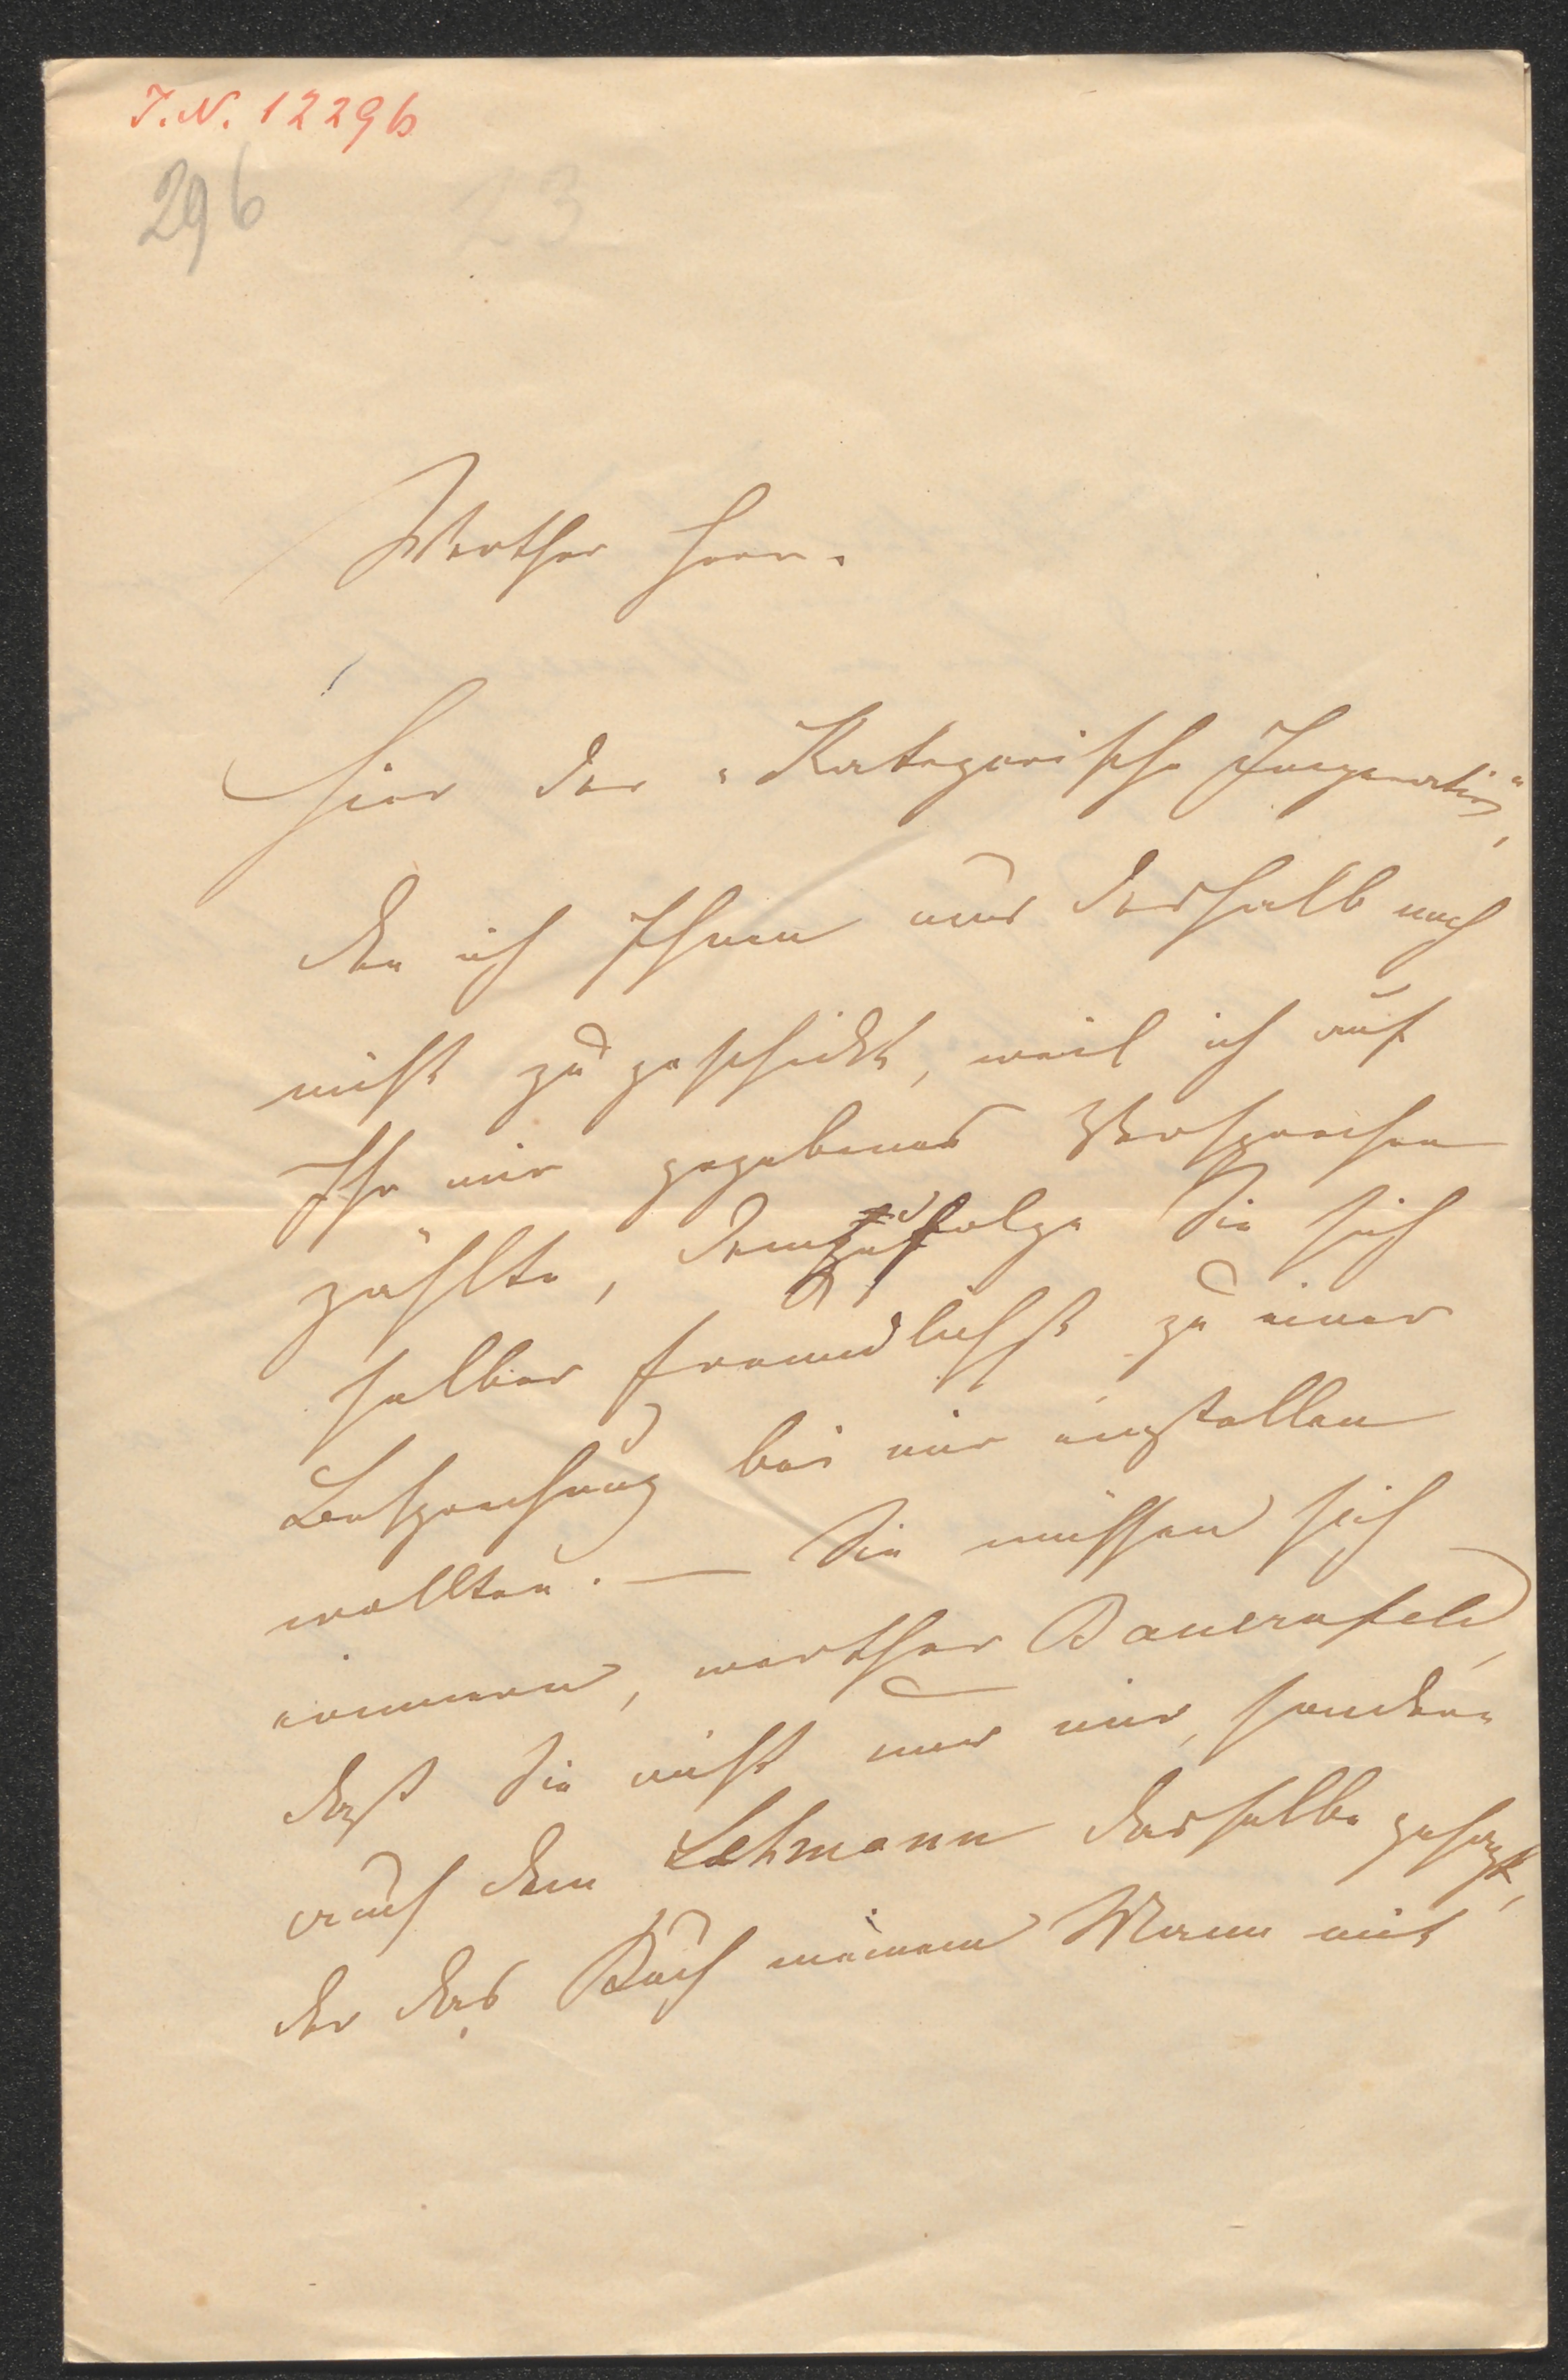 I.N. 12296
296
23
Werther Herr.
Hier der „Kategorische Imperativ“,
den ich Ihnen nur deshalb noch
nicht zu geschickt, weil ich auf
Ihr mir gegebenes Versprechen
zählte, demzufolge Sie sich
selber freundlichst zu einer
Besprechung bei mir einstellen
wollten. — Sie müssen sich
erinnern, werther Bauernfeld,
daß Sie nicht nur mir, sondern
auch dem Lehmann dasselbe gesagt,
der das Buch meinem Mann mit